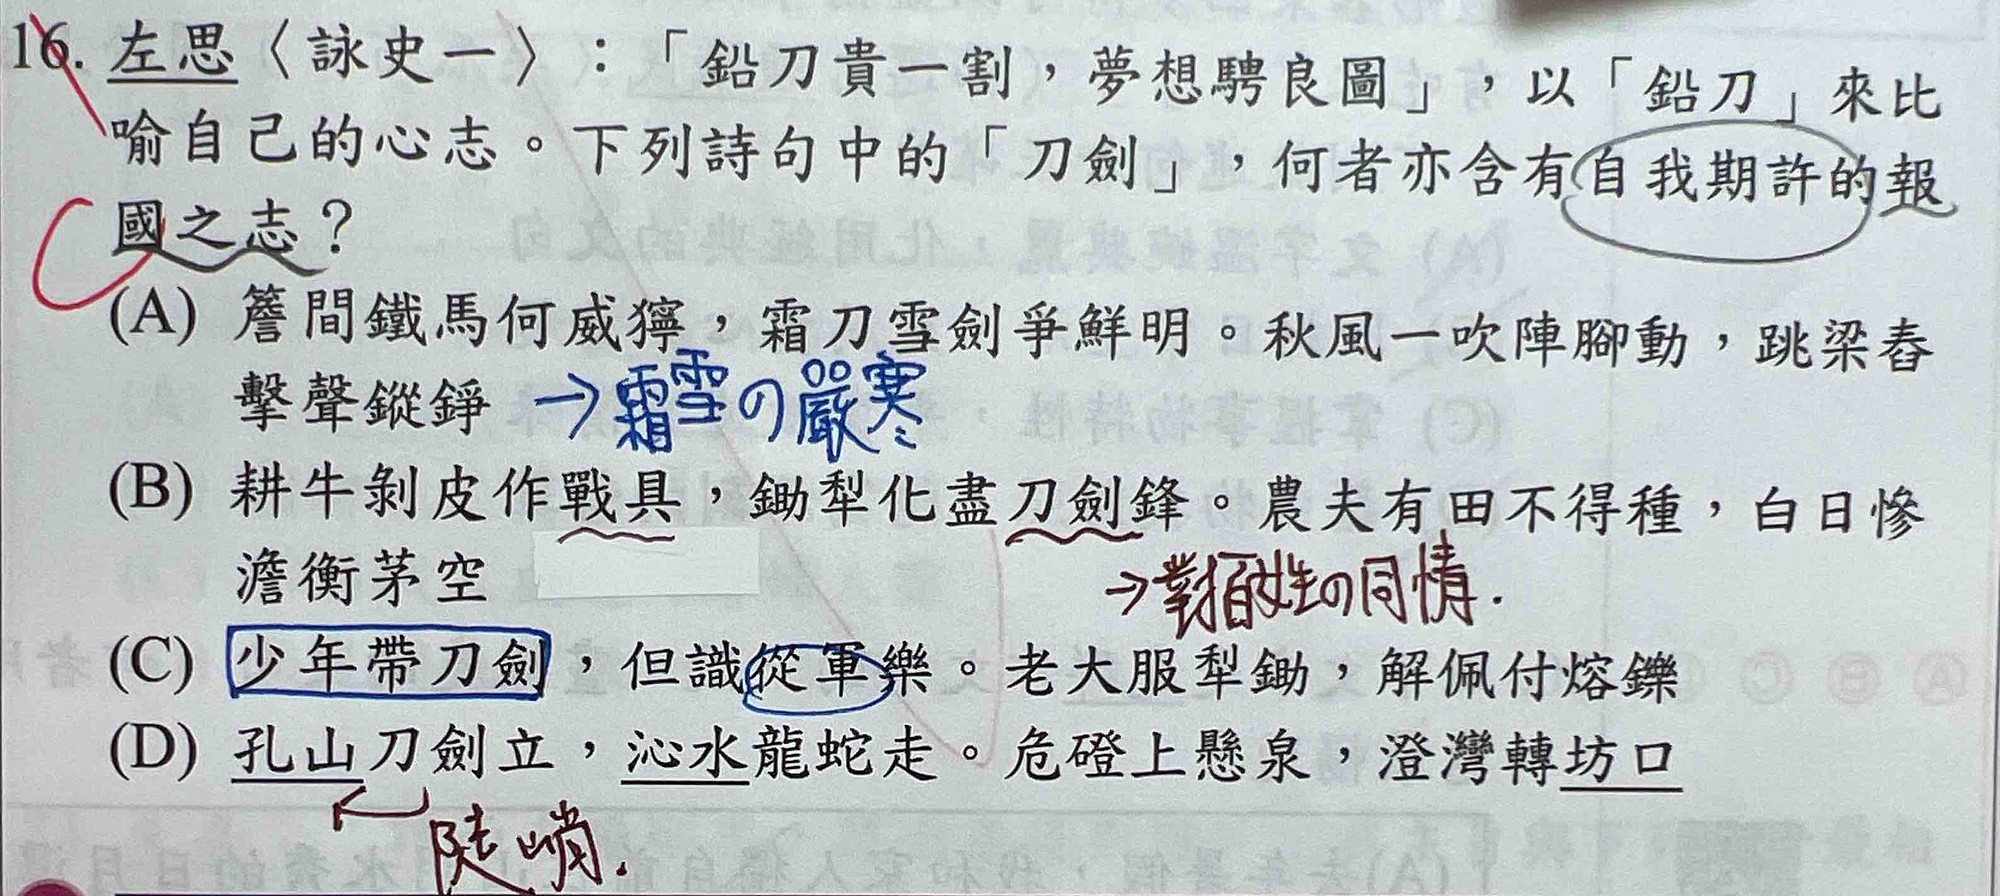 16. 左思〈詠史一〉：「鉛刀貴一割，夢想騁良圖」，以「鉛刀」來比
喻自己的心志。下列詩句中的「刀劍」，何者亦含有自我期許的報
國之志？
C
(A) 簷間鐵馬何威獰，霜刀雪劍爭鮮明。秋風一吹陣腳動，跳梁舂
擊聲鏦錚
→霜雪の嚴寒
(B) 耕牛剝皮作戰具，鋤犁化盡刀劍鋒。農夫有田不得種，白日慘
澹衡茅空
→對百姓の同情.
(C) 少年帶刀劍，但識從軍樂。老大服犁鋤，解佩付熔鑠
(D) 孔山刀劍立，沁水龍蛇走。危磴上懸泉，澄灣轉坊口
陡峭.